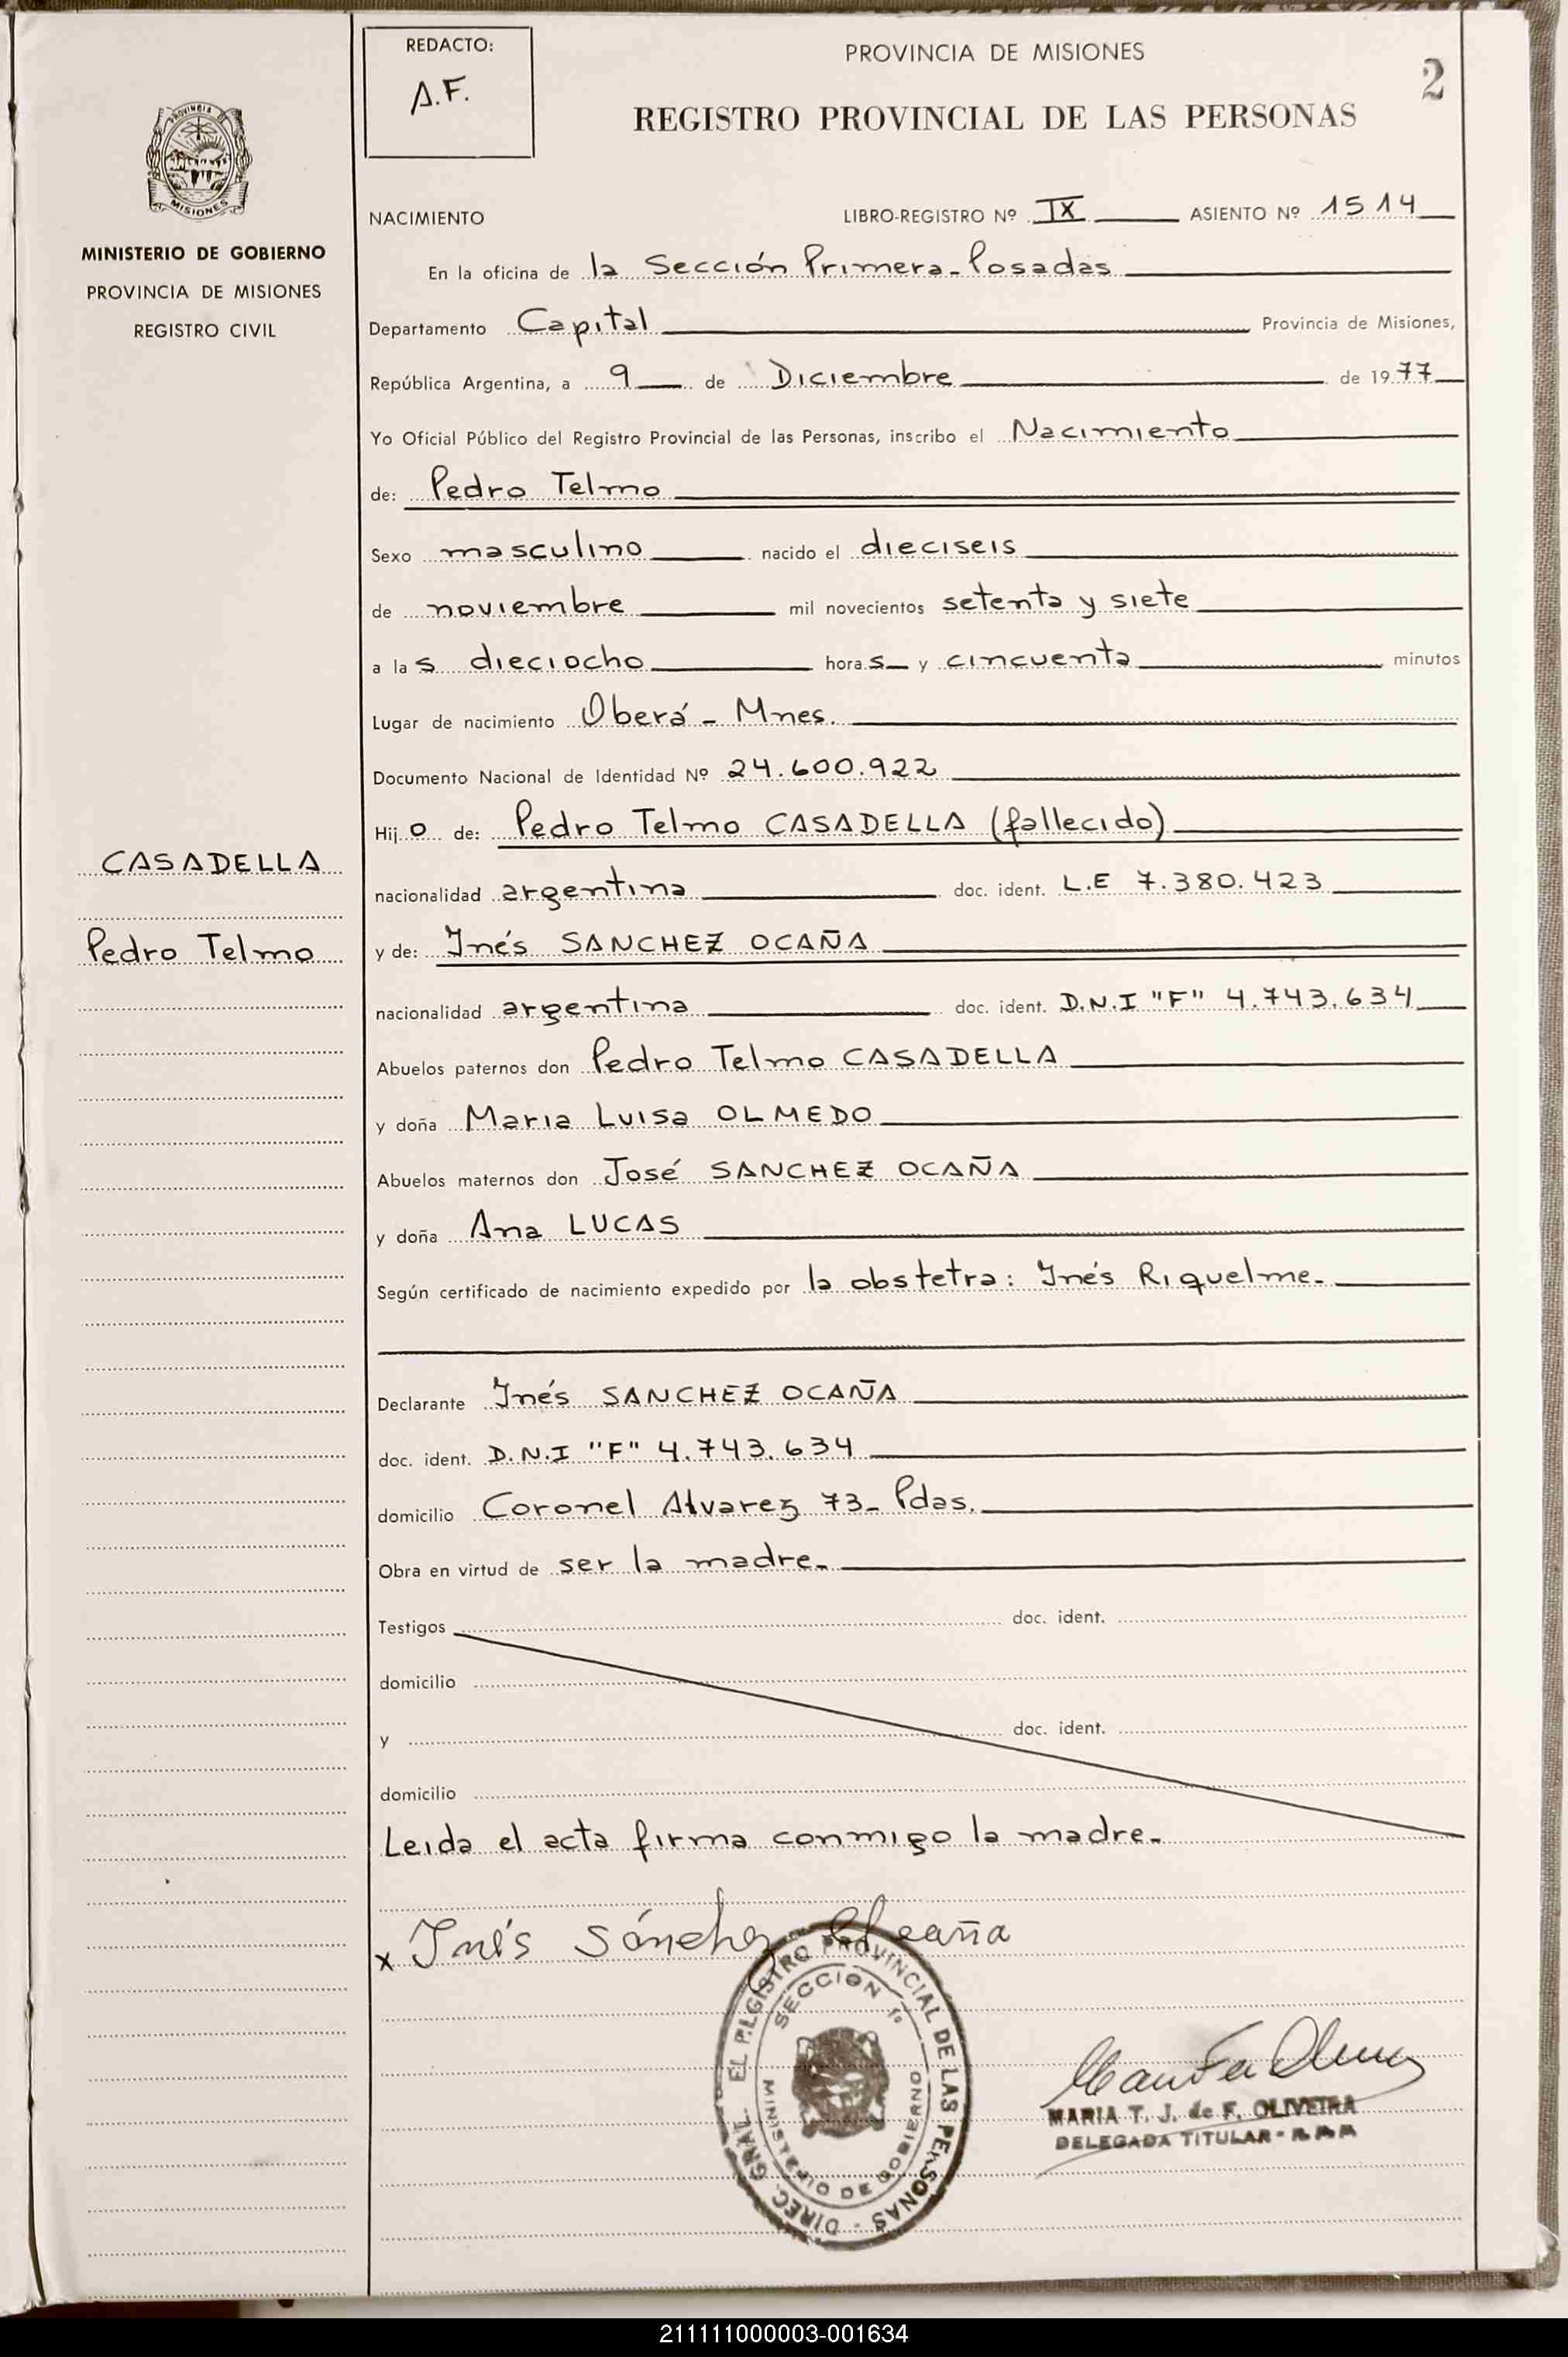 REDACTO:
A.F.
PROVINCIA DE MISIONES
2
REGISTRO PROVINCIAL DE LAS PERSONAS
PROVINCIA DE
MISIONES
MINISTERIO DE GOBIERNO
PROVINCIA DE MISIONES
REGISTRO CIVIL
NACIMIENTO LIBRO-REGISTRO Nº IX ASIENTO Nº 1514
En la oficina de la Sección Primera-Posadas
Departamento Capital Provincia de Misiones,
República Argentina, a 9 de Diciembre de 1977
Yo Oficial Público del Registro Provincial de las Personas, inscribo el Nacimiento
de: Pedro Telmo
Sexo masculino nacido el dieciseis
de noviembre mil novecientos setenta y siete
a las dieciocho horas y cincuenta minutos
Lugar de nacimiento Oberá - Mnes.
Documento Nacional de Identidad Nº 24.600.922
Hijo de: Pedro Telmo CASADELLA (fallecido)
CASADELLA
nacionalidad argentina doc. ident. L.E 7.380.423
Pedro Telmo
y de: Inés SANCHEZ OCAÑA
nacionalidad argentina doc. ident. D.N.I "F" 4.743.634
Abuelos paternos don Pedro Telmo CASADELLA
y doña Maria Luisa OLMEDO
Abuelos maternos don José SANCHEZ OCAÑA
y doña Ana LUCAS
Según certificado de nacimiento expedido por la obstetra: Inés Riquelme.
Declarante Inés SANCHEZ OCAÑA
doc. ident. D.N.I "F" 4.743.634
domicilio Coronel Alvarez 73- Pdas.
Obra en virtud de ser la madre.
Testigos doc. ident.
domicilio
y doc. ident.
domicilio
Leida el acta firma conmigo la madre.
x Inés Sánchez Ocaña
DIREC. GRAL. EL REGISTRO PROVINCIAL DE LAS PERSONAS -
SECCION 1º
MINISTERIO DE GOBIERNO
MARIA T. J. de F. OLIVEIRA
DELEGADA TITULAR -
211111000003-001634